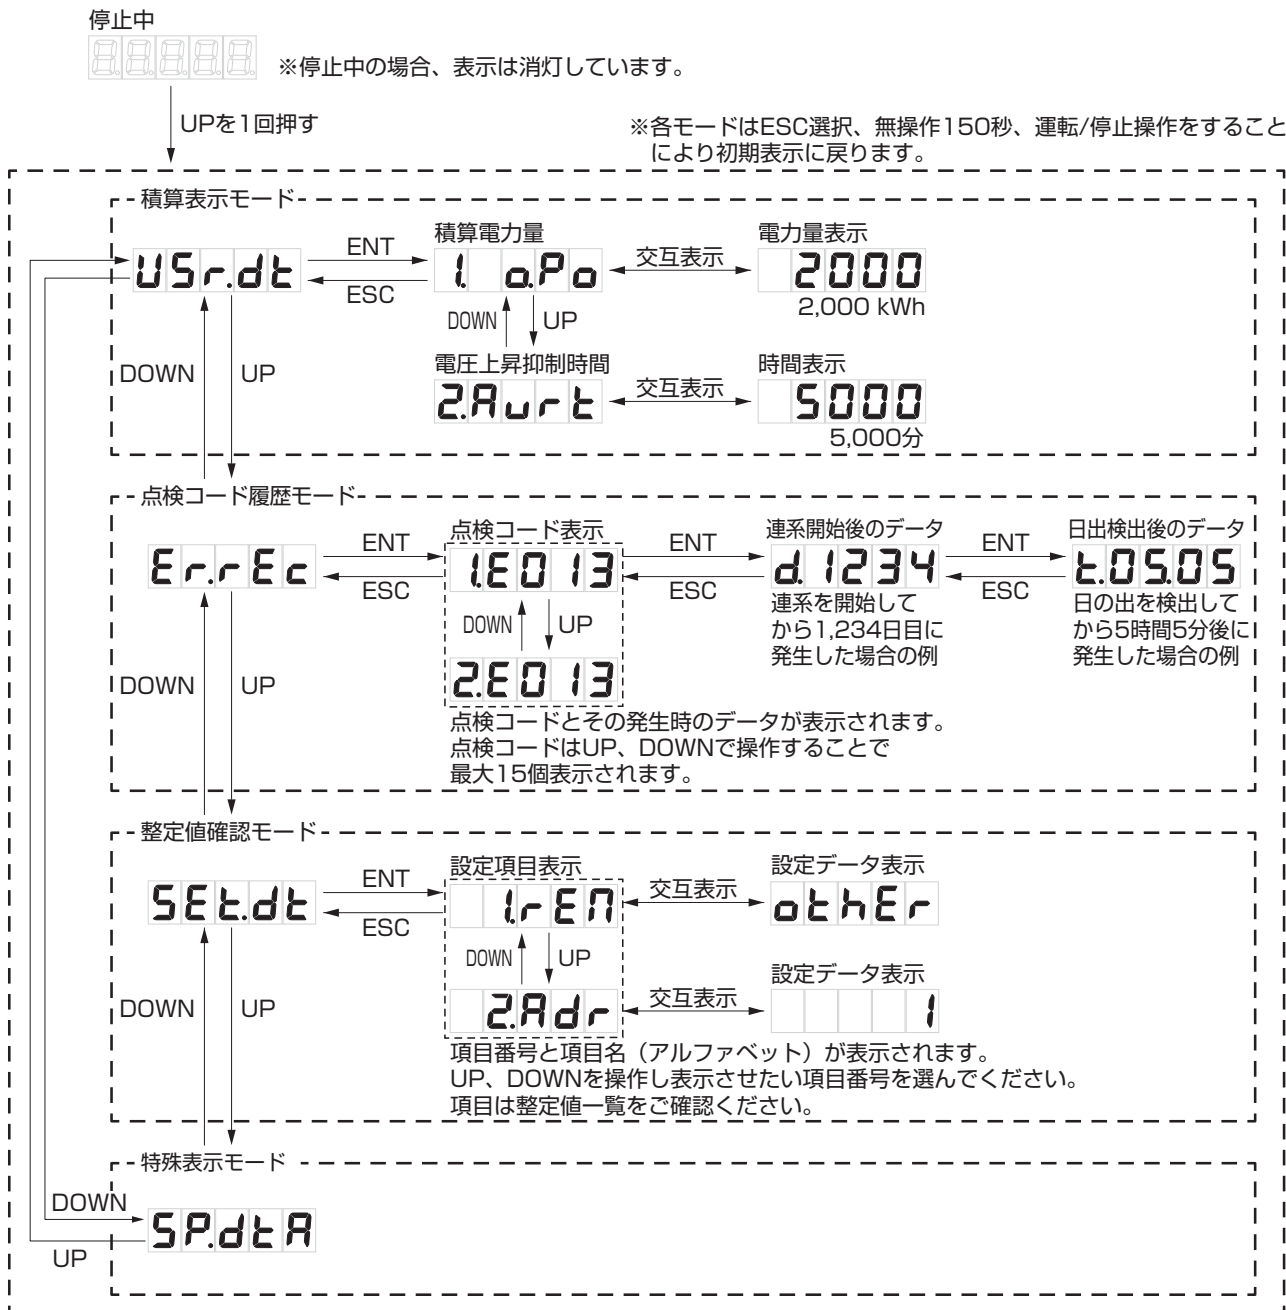 停止中
8.8.8.8.8.
※停止中の場合、表示は消灯しています。
UPを1回押す
※各モードはESC選択、無操作150秒、運転/停止操作をすること
により初期表示に戻ります。
積算表示モード
USr.dt
ENT
ESC
積算電力量
1. o.Po
交互表示
電力量表示
2000
2,000 kWh
DOWN
UP
DOWN
UP
電圧上昇抑制時間
2.Aurt
交互表示
時間表示
5000
5,000分
点検コード履歴モード
Er.rEc
ENT
ESC
点検コード表示
1.E013
DOWN
UP
2.E013
ENT
ESC
連系開始後のデータ
d.1234
連系を開始して
から1,234日目に
発生した場合の例
ENT
ESC
日出検出後のデータ
t.05.05
日の出を検出して
から5時間5分後に
発生した場合の例
DOWN
UP
点検コードとその発生時のデータが表示されます。
点検コードはUP、DOWNで操作することで
最大15個表示されます。
整定値確認モード
SEt.dt
ENT
ESC
設定項目表示
1.rEM
交互表示
設定データ表示
othEr
DOWN
UP
DOWN
UP
2.Adr
交互表示
設定データ表示
1
項目番号と項目名（アルファベット）が表示されます。
UP、DOWNを操作し表示させたい項目番号を選んでください。
項目は整定値一覧をご確認ください。
特殊表示モード
DOWN
SP.dtA
UP